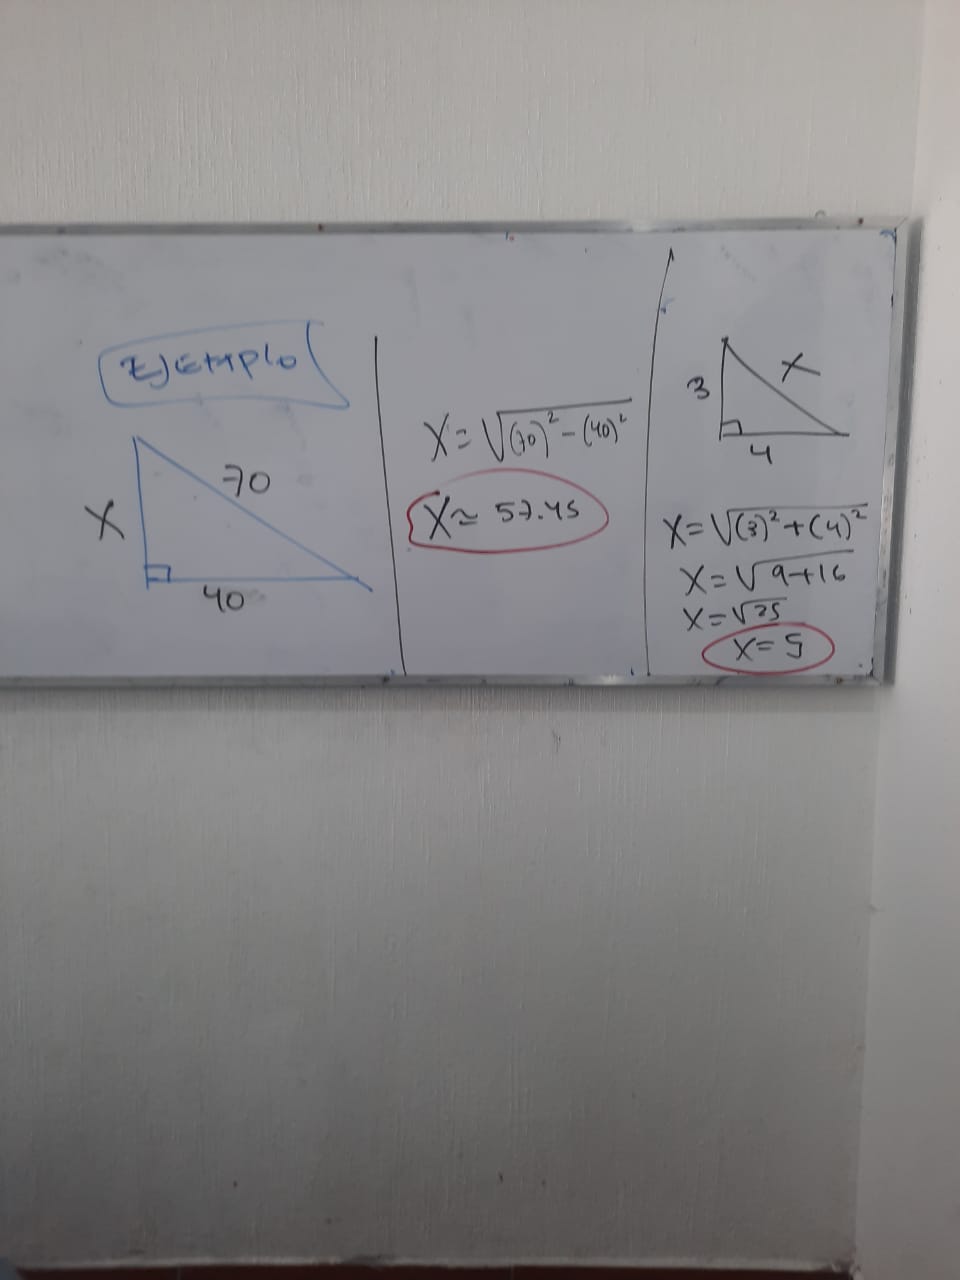 EJEMPLO
70
X
40
X = √(70)² - (40)²
X ≈ 57.45
3
X
4
X = √(3)² + (4)²
X = √9+16
X = √25
X = 5